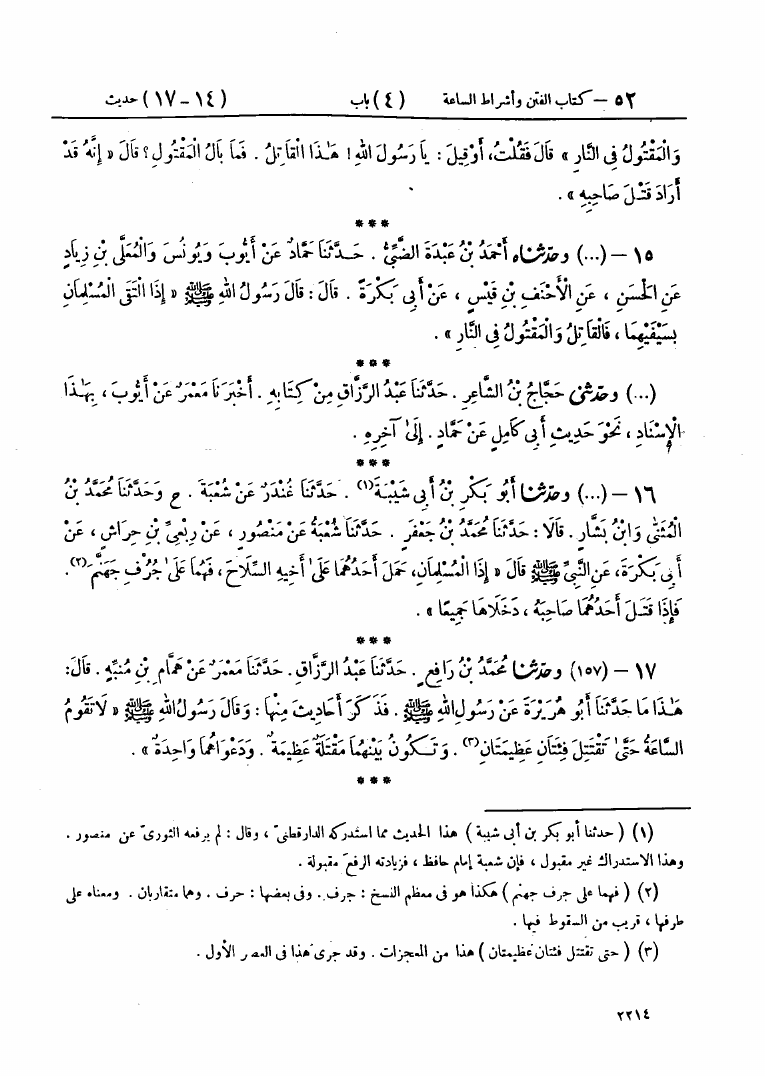 ٥٢ – كتاب الفتن وأشراط الساعة (٤) باب (١٤ – ١٧) حديث
وَالْمَقْتُولُ فِي النَّارِ » قَالَ فَقُلْتُ، أَوْ قِيلَ : يَا رَسُولَ اللهِ ! هَٰذَا الْقَاتِلُ . فَمَا بَالُ الْمَقْتُولِ ؟ قَالَ « إِنَّهُ قَدْ
أَرَادَ قَتْلَ صَاحِبِهِ » .
***
١٥ – (...) وحَدَّثَنَاه أَحْمَدُ بْنُ عَبْدَةَ الضَّبِّيُّ . حَدَّثَنَا حَمَّادٌ عَنْ أَيُّوبَ وَيُونُسَ وَالْمُعَلَّى بْنِ زِيَادٍ
عَنِ الْحَسَنِ ، عَنِ الْأَحْنَفِ بْنِ قَيْسٍ ، عَنْ أَبِي بَكْرَةَ . قَالَ : قَالَ رَسُولُ اللهِ ﷺ « إِذَا الْتَقَى الْمُسْلِمَانِ
بِسَيْفَيْهِمَا ، فَالْقَاتِلُ وَالْمَقْتُولُ فِي النَّارِ » .
***
(...) وحَدَّثَنِي حَجَّاجُ بْنُ الشَّاعِرِ . حَدَّثَنَا عَبْدُ الرَّزَّاقِ مِنْ كِتَابِهِ . أَخْبَرَنَا مَعْمَرٌ عَنْ أَيُّوبَ ، بِهَٰذَا
الْإِسْنَادِ ، نَحْوَ حَدِيثِ أَبِي كَامِلٍ عَنْ حَمَّادٍ . إِلَىٰ آخِرِهِ .
***
١٦ – (...) وحَدَّثَنَا أَبُو بَكْرِ بْنُ أَبِي شَيْبَةَ(١) . حَدَّثَنَا غُنْدَرٌ عَنْ شُعْبَةَ . ح وَحَدَّثَنَا مُحَمَّدُ بْنُ
الْمُثَنَّى وَابْنُ بَشَّارٍ . قَالَا : حَدَّثَنَا مُحَمَّدُ بْنُ جَعْفَرٍ . حَدَّثَنَا شُعْبَةُ عَنْ مَنْصُورٍ ، عَنْ رِبْعِيِّ بْنِ حِرَاشٍ ، عَنْ
أَبِي بَكْرَةَ ، عَنِ النَّبِيِّ ﷺ قَالَ « إِذَا الْمُسْلِمَانِ، حَمَلَ أَحَدُهُمَا عَلَىٰ أَخِيهِ السِّلَاحَ، فَهُمَا عَلَىٰ جُرُفِ جَهَنَّمَ(٢).
فَإِذَا قَتَلَ أَحَدُهُمَا صَاحِبَهُ ، دَخَلَاهَا جَمِيعًا » .
***
١٧ – (١٥٧) وحَدَّثَنَا مُحَمَّدُ بْنُ رَافِعٍ . حَدَّثَنَا عَبْدُ الرَّزَّاقِ . حَدَّثَنَا مَعْمَرٌ عَنْ هَمَّامِ بْنِ مُنَبِّهٍ . قَالَ :
هَٰذَا مَا حَدَّثَنَا أَبُو هُرَيْرَةَ عَنْ رَسُولِ اللهِ ﷺ . فَذَكَرَ أَحَادِيثَ مِنْهَا : وَقَالَ رَسُولُ اللهِ ﷺ « لَا تَقُومُ
السَّاعَةُ حَتَّىٰ تَقْتَتِلَ فِئَتَانِ عَظِيمَتَانِ(٣) . وَتَكُونُ بَيْنَهُمَا مَقْتَلَةٌ عَظِيمَةٌ . وَدَعْوَاهُمَا وَاحِدَةٌ » .
***
(١) ( حدثنا أبو بكر بن أبي شيبة ) هذا الحديث مما استدركه الدارقطنيّ ، وقال : لم يرفعه الثوريّ عن منصور .
وهذا الاستدراك غير مقبول ، فإن شعبة إمام حافظ ، فزيادته الرفع مقبولة .
(٢) ( فهما على جرف جهنم ) هكذا هو في معظم النسخ : جرف . وفي بعضها : حرف . وهما متقاربان . ومعناه على
طرفها ، قريب من السقوط فيها .
(٣) ( حتى تقتتل فئتان عظيمتان ) هذا من المعجزات . وقد جرى هذا في العصر الأول .
٢٢١٤